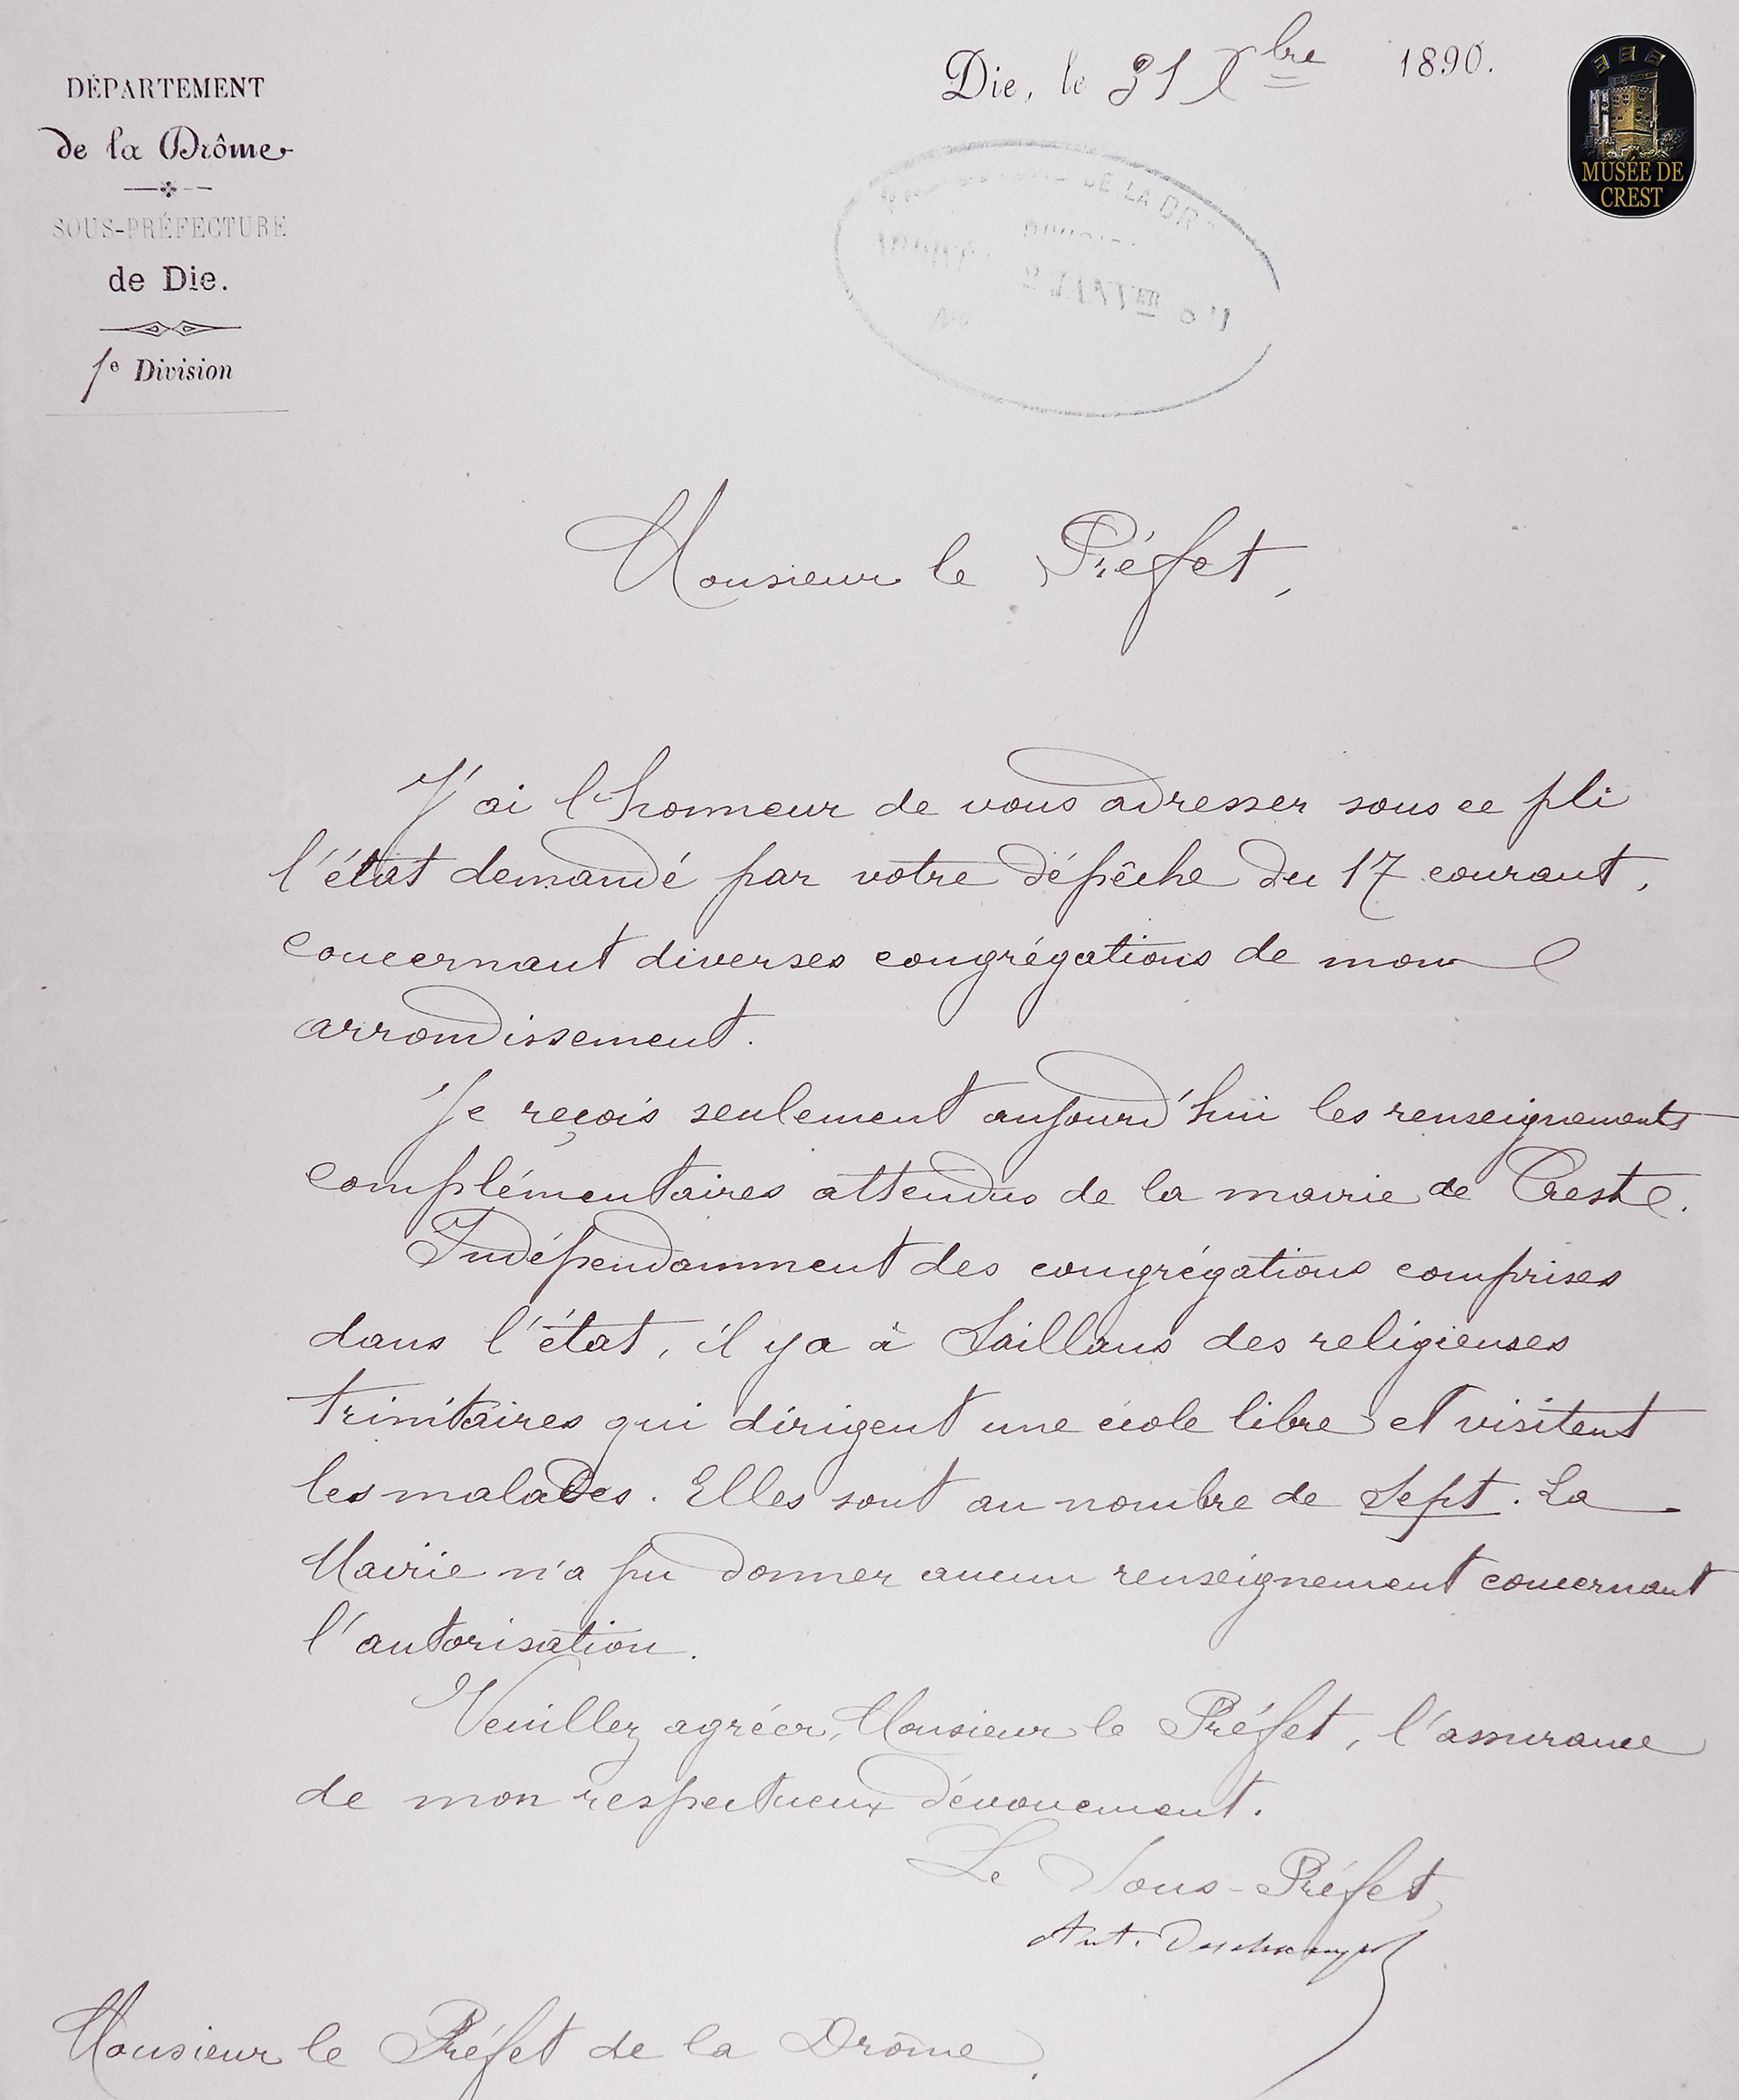 DÉPARTEMENT
de la Drôme
SOUS-PRÉFECTURE
de Die.
1e Division
Die, le 31 Xbre 1890.
MUSÉE DE
CREST
DE LA DR
2 JANVIER
Monsieur le Préfet,
J'ai l'honneur de vous adresser sous ce pli
l'état demandé par votre dépêche du 17 courant,
concernant diverses congrégations de mon
arrondissement.
Je reçois seulement aujourd'hui les renseignements
complémentaires attendus de la mairie de Crest.
Indépendamment des congrégations comprises
dans l'état, il y a à Saillans des religieuses
trinitaires qui dirigent une école libre et visitent
les malades. Elles sont au nombre de Sept. La
Mairie n'a pu donner aucun renseignement concernant
l'autorisation.
Veuillez agréer, Monsieur le Préfet, l'assurance
de mon respectueux dévouement.
Le Sous-Préfet,
Ant. Deschamps
Monsieur le Préfet de la Drôme.